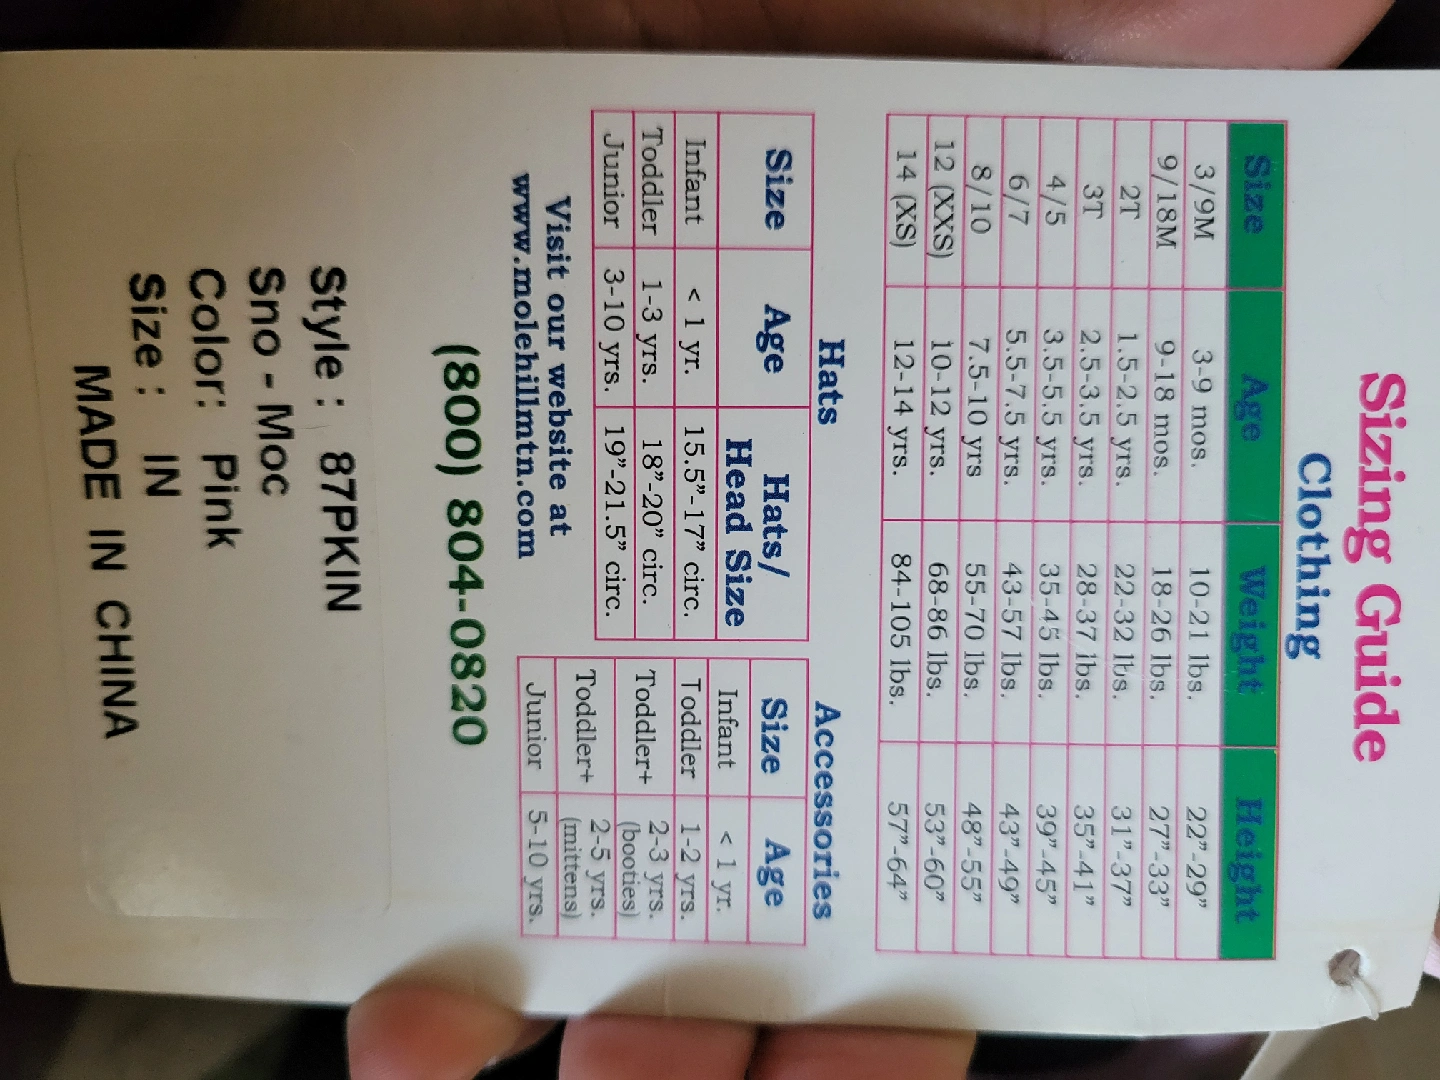 Sizing Guide
Clothing
Size Age Weight Height
3/9M 3-9 mos. 10-21 lbs. 22”-29”
9/18M 9-18 mos. 18-26 lbs. 27”-33”
2T 1.5-2.5 yrs. 22-32 lbs. 31”-37”
3T 2.5-3.5 yrs. 28-37 lbs. 35”-41”
4/5 3.5-5.5 yrs. 35-45 lbs. 39”-45”
6/7 5.5-7.5 yrs. 43-57 lbs. 43”-49”
8/10 7.5-10 yrs 55-70 lbs. 48”-55”
12 (XXS) 10-12 yrs. 68-86 lbs. 53”-60”
14 (XS) 12-14 yrs. 84-105 lbs. 57”-64”
Hats
Size Age Hats/
Head Size
Infant < 1 yr. 15.5”-17” circ.
Toddler 1-3 yrs. 18”-20” circ.
Junior 3-10 yrs. 19”-21.5” circ.
Accessories
Size Age
Infant < 1 yr.
Toddler 1-2 yrs.
Toddler+ 2-3 yrs.
(booties)
Toddler+ 2-5 yrs.
(mittens)
Junior 5-10 yrs.
Visit our website at
www.molehillmtn.com
(800) 804-0820
Style : 87PKIN
Sno - Moc
Color: Pink
Size : IN
MADE IN CHINA